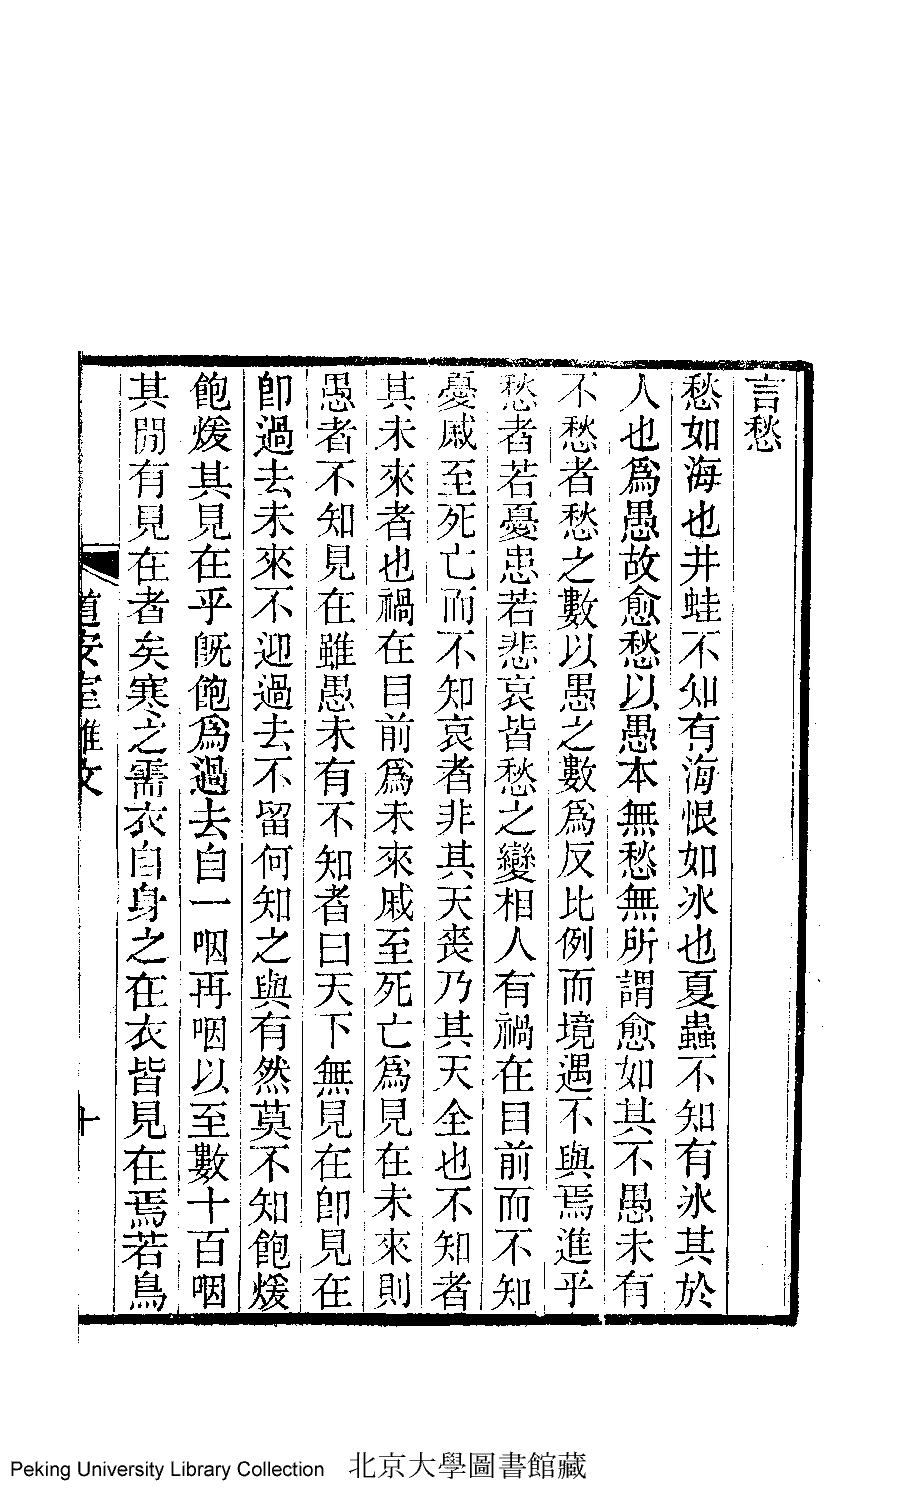 言愁
愁如海也井蛙不知有海恨如冰也夏蟲不知有冰其於
人也爲愚故愈愁以愚本無愁無所謂愈如其不愚未有
不愁者愁之數以愚之數爲反比例而境遇不與焉進乎
愁者若憂患若悲哀皆愁之變相人有禍在目前而不知
憂戚至死亡而不知哀者非其天喪乃其天全也不知者
其未來者也禍在目前爲未來戚至死亡爲見在未來則
愚者不知見在雖愚未有不知者曰天下無見在卽見在
卽過去未來不迎過去不留何知之與有然莫不知飽煖
飽煖其見在乎旣飽爲過去自一咽再咽以至數十百咽
其閒有見在者矣寒之需衣自身之在衣皆見在焉若鳥
道安室雜文
十
Peking University Library Collection 北京大學圖書館藏